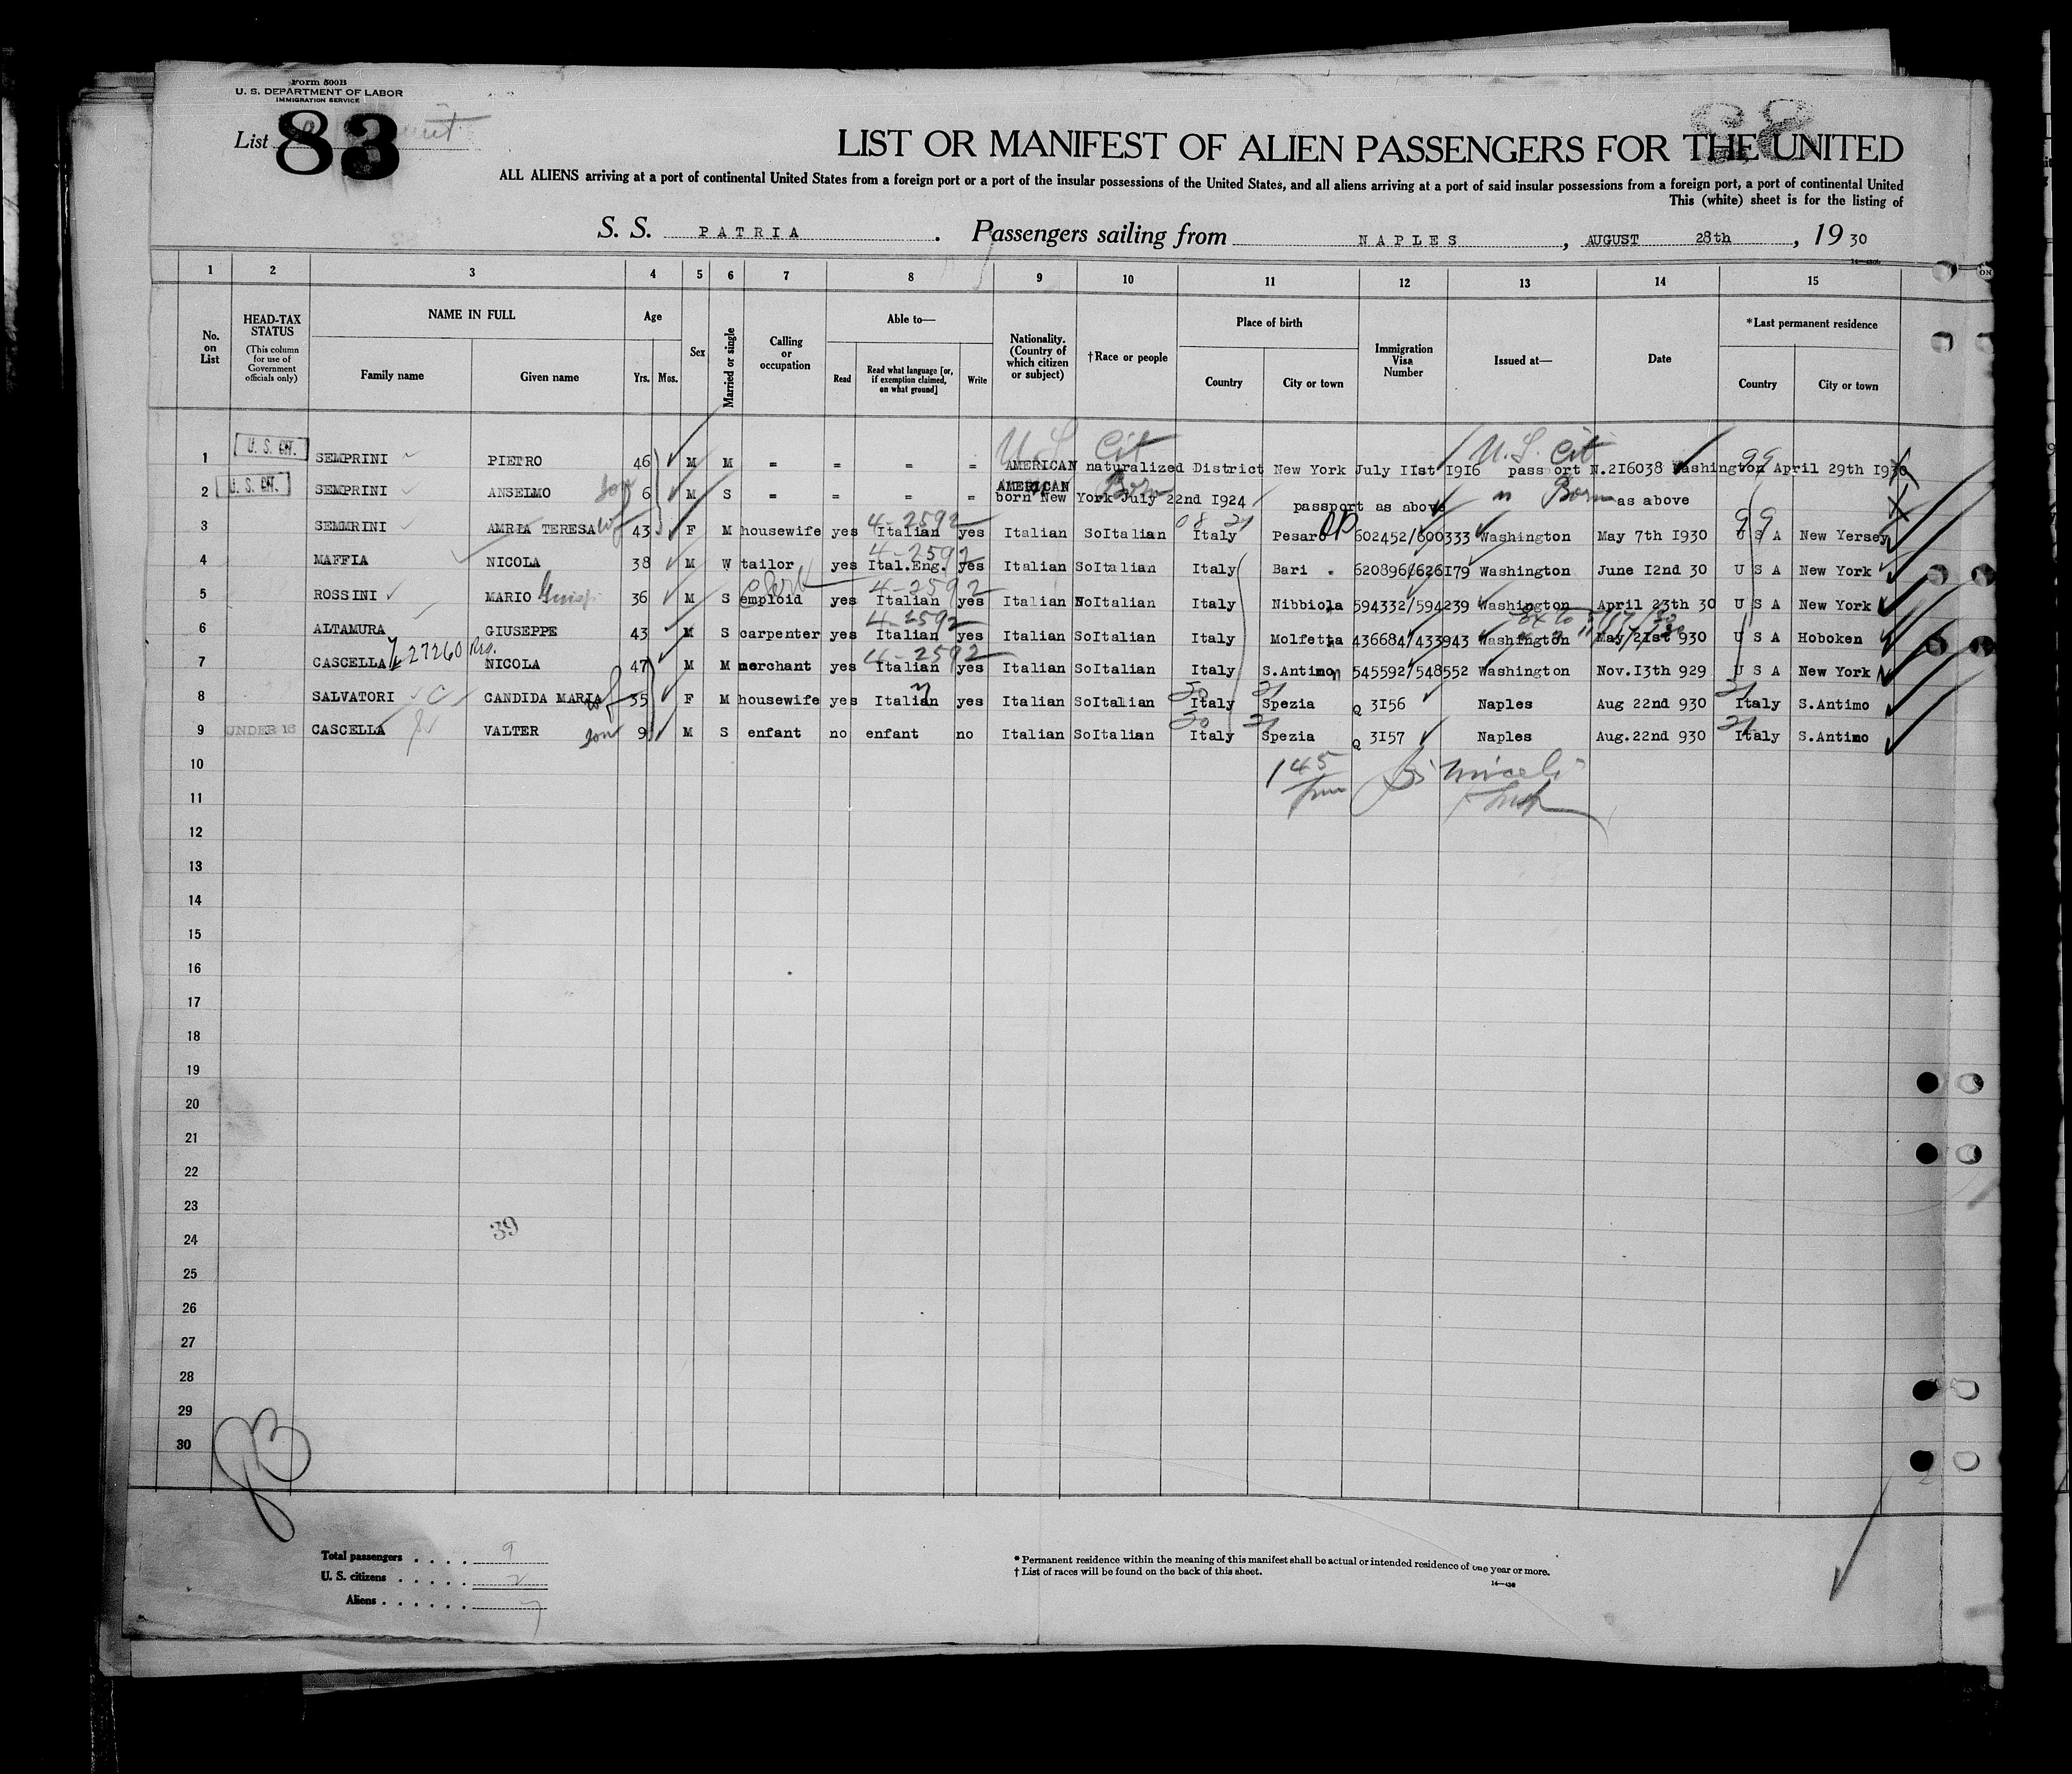 Form 500B
U. S. DEPARTMENT OF LABOR
IMMIGRATION SERVICE
List 83
LIST OR MANIFEST OF ALIEN PASSENGERS FOR THE UNITED
ALL ALIENS arriving at a port of continental United States from a foreign port or a port of the insular possessions of the United States, and all aliens arriving at a port of said insular possessions from a foreign port, a port of continental United
This (white) sheet is for the listing of
S. S. PATRIA. Passengers sailing from NAPLES, AUGUST 28th, 19 30
1 2 3 4 5 6 7 8 9 10 11 12 13 14 15
No. on List
HEAD-TAX STATUS (This column for use of Government officials only)
NAME IN FULL
Family name Given name
Age
Yrs. Mos.
Sex
Married or single
Calling or occupation
Able to—
Read Read what language [or, if exemption claimed, on what ground] Write
Nationality. (Country of which citizen or subject)
†Race or people
Place of birth
Country City or town
Immigration Visa Number
Issued at—
Date
*Last permanent residence
Country City or town
U. S. Cit U. S. Cit 99
1 U. S. CIT. SEMPRINI PIETRO 46 M M = = = = AMERICAN naturalized District New York July IIst I9I6 pass ort N.2I6038 Washington April 29th I930
2 U. S. CIT. SEMPRINI ANSELMO son 6 M S = = = = AMERICAN born New York July 22nd I924 Born passport as above " Born as above
4-2592 08 21 99
3 SEMMRINI AMRIA TERESA wf 43 F M housewife yes Italian yes Italian SoItalian Italy Pesaro 602452/600333 Washington May 7th I930 U S A New Yersey
4-2592
4 MAFFIA NICOLA 38 M W tailor yes Ital.Eng. yes Italian SoItalian Italy Bari 620896/626I79 Washington June I2nd 30 U S A New York
Clerk 4-2592
5 ROSSINI MARIO 36 M S emploid yes Italian yes Italian NoItalian Italy Nibbiola 594332/594239 Washington April 23th 30 U S A New York
4-2592
6 ALTAMURA GIUSEPPE 43 M S carpenter yes Italian yes Italian SoItalian Italy Molfetta 436684/433943 Washington May/2Ist 930 U S A Hoboken
27260 4-2592
7 CASCELLA NICOLA 47 M M merchant yes Italian yes Italian SoItalian Italy S.Antimo 545592/548552 Washington Nov.I3th 929 U S A New York
50 21 21
8 SALVATORI CANDIDA MARIA wf 35 F M housewife yes Italian yes Italian SoItalian Italy Spezia Q 3I56 Naples Aug 22nd 930 Italy S.Antimo
50 21 21
9 UNDER 16 CASCELLA VALTER son 9 M S enfant no enfant no Italian SoItalian Italy Spezia Q 3I57 Naples Aug.22nd 930 Italy S.Antimo
10 1 45
11
12
13
14
15
16
17
18
19
20
21
22
23
39
24
25
26
27
28
29
30
Total passengers . . . . 9
U. S. citizens . . . . . 2
Aliens . . . . . . 7
* Permanent residence within the meaning of this manifest shall be actual or intended residence of one year or more.
† List of races will be found on the back of this sheet.